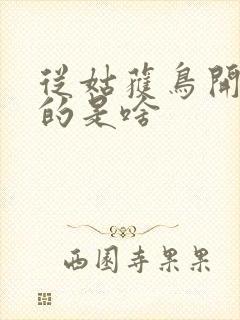 從姑獲鳥開
的是啥
西園寺果果